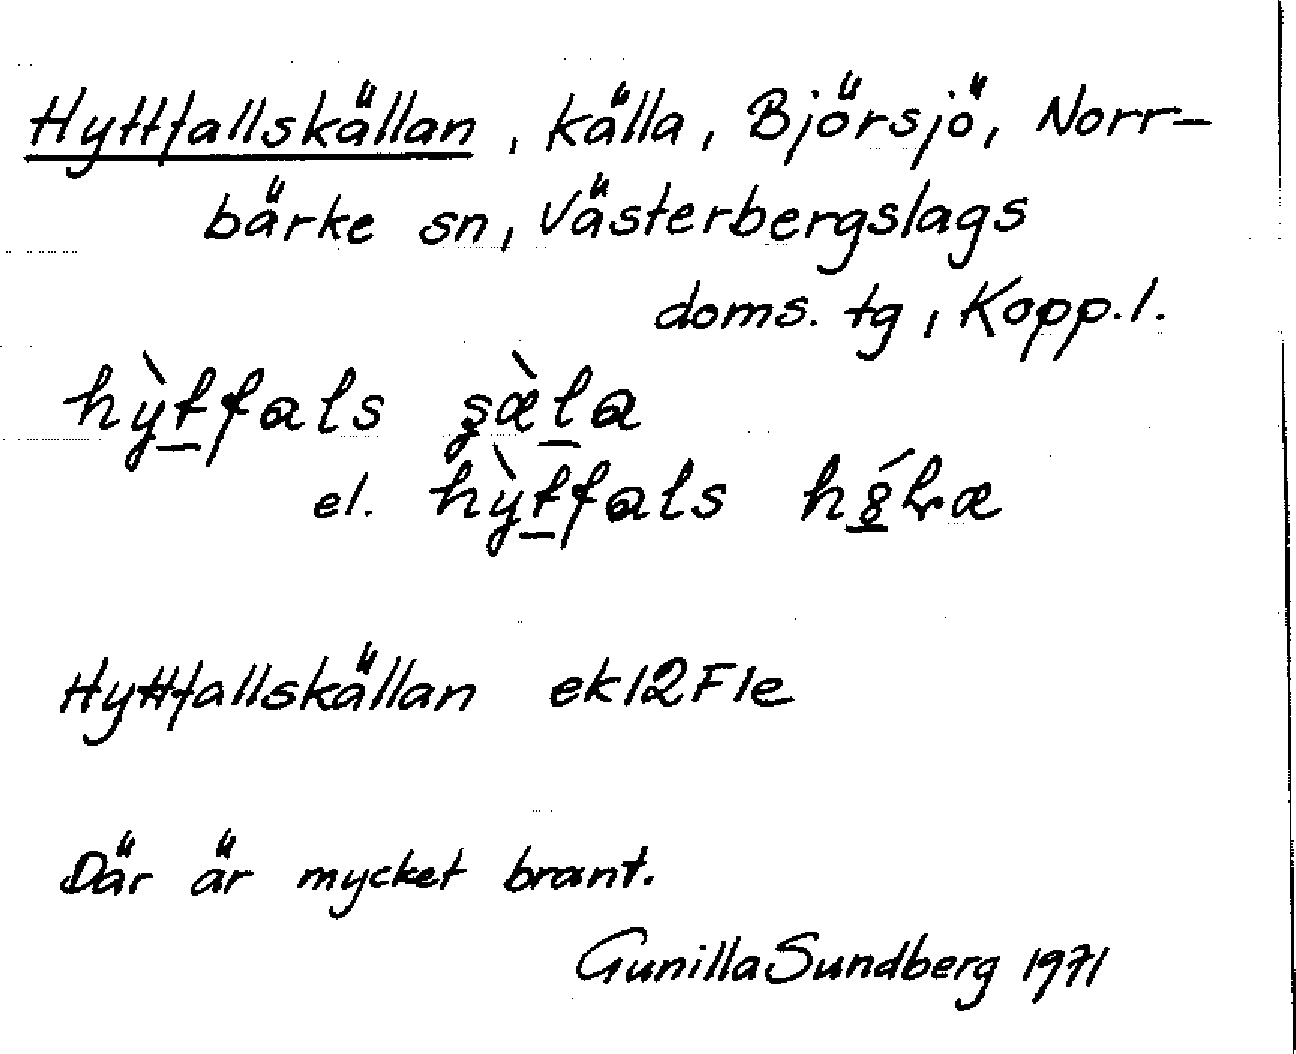 Hyttfallskällan, källa, Björsjö, Norr-
bärke sn, Västerbergslags
doms. tg, Kopp. l.
hỳt̲fals ʂæ̀l̲a
el. hỳt̲fals
Hyttfallskällan ek12F1e
Där är mycket brant.
Gunilla Sundberg 1971